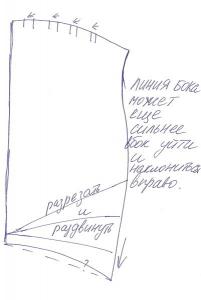 линия бока
может
еще
сильнее
вбок уйти
и
наклониться
вправо.
разрезать
и
раздвинуть
?